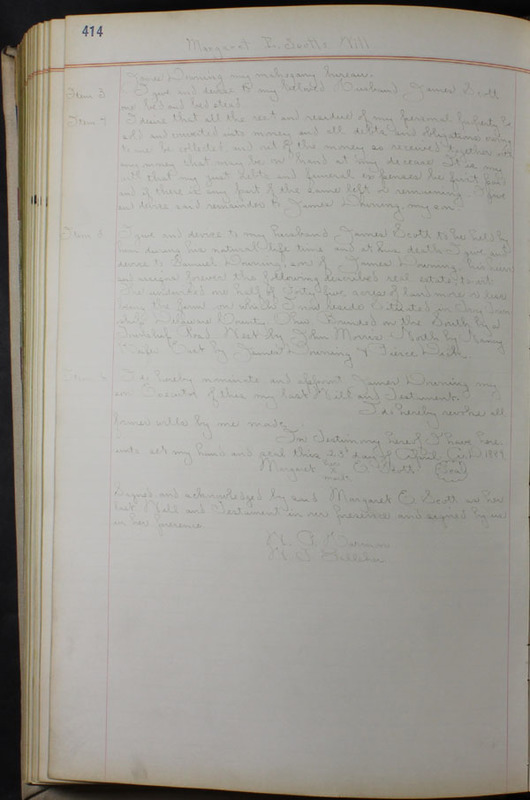 414
Margaret E. Scotts Will
James Downing my mahogany bureau.
Item 3 I give and devise to my beloved Husband James Scott
one bed and bed stead.
Item 4 I desire that all the rest and residue of my personal property be
sold and converted into money and all debts and obligations owing
to me be collected and out of the money so received together with
any money that may be on hand at my decease It is my
will that my just debts and funeral expenses be first paid
and if there is any part of the same left or remaining I give
and devise said remainder to James Downing my son.
I give and devise to my husband James Scott to be held by
him during his natural life time and at his death I give and
devise to Samuel Downing son of James Downing, his heirs
and assigns forever the following described real estate, to wit
The undivided one half of forty five acres of land more or less
being the farm on which I now reside Situated in
Delaware County Ohio Bounded on the South by a
Township Road West by John Morris North by
East by James Downing &
I do hereby nominate and appoint James Downing my
son Executor of this my last Will and Testament.
I do hereby revoke all
former wills by me made.
In Testimony hereof I have here
unto set my hand and seal this 23d day of April
Margaret her x mark E. Scott Seal
Signed and acknowledged by said Margaret E. Scott as her
last Will and Testament in our presence and signed by us
in her presence